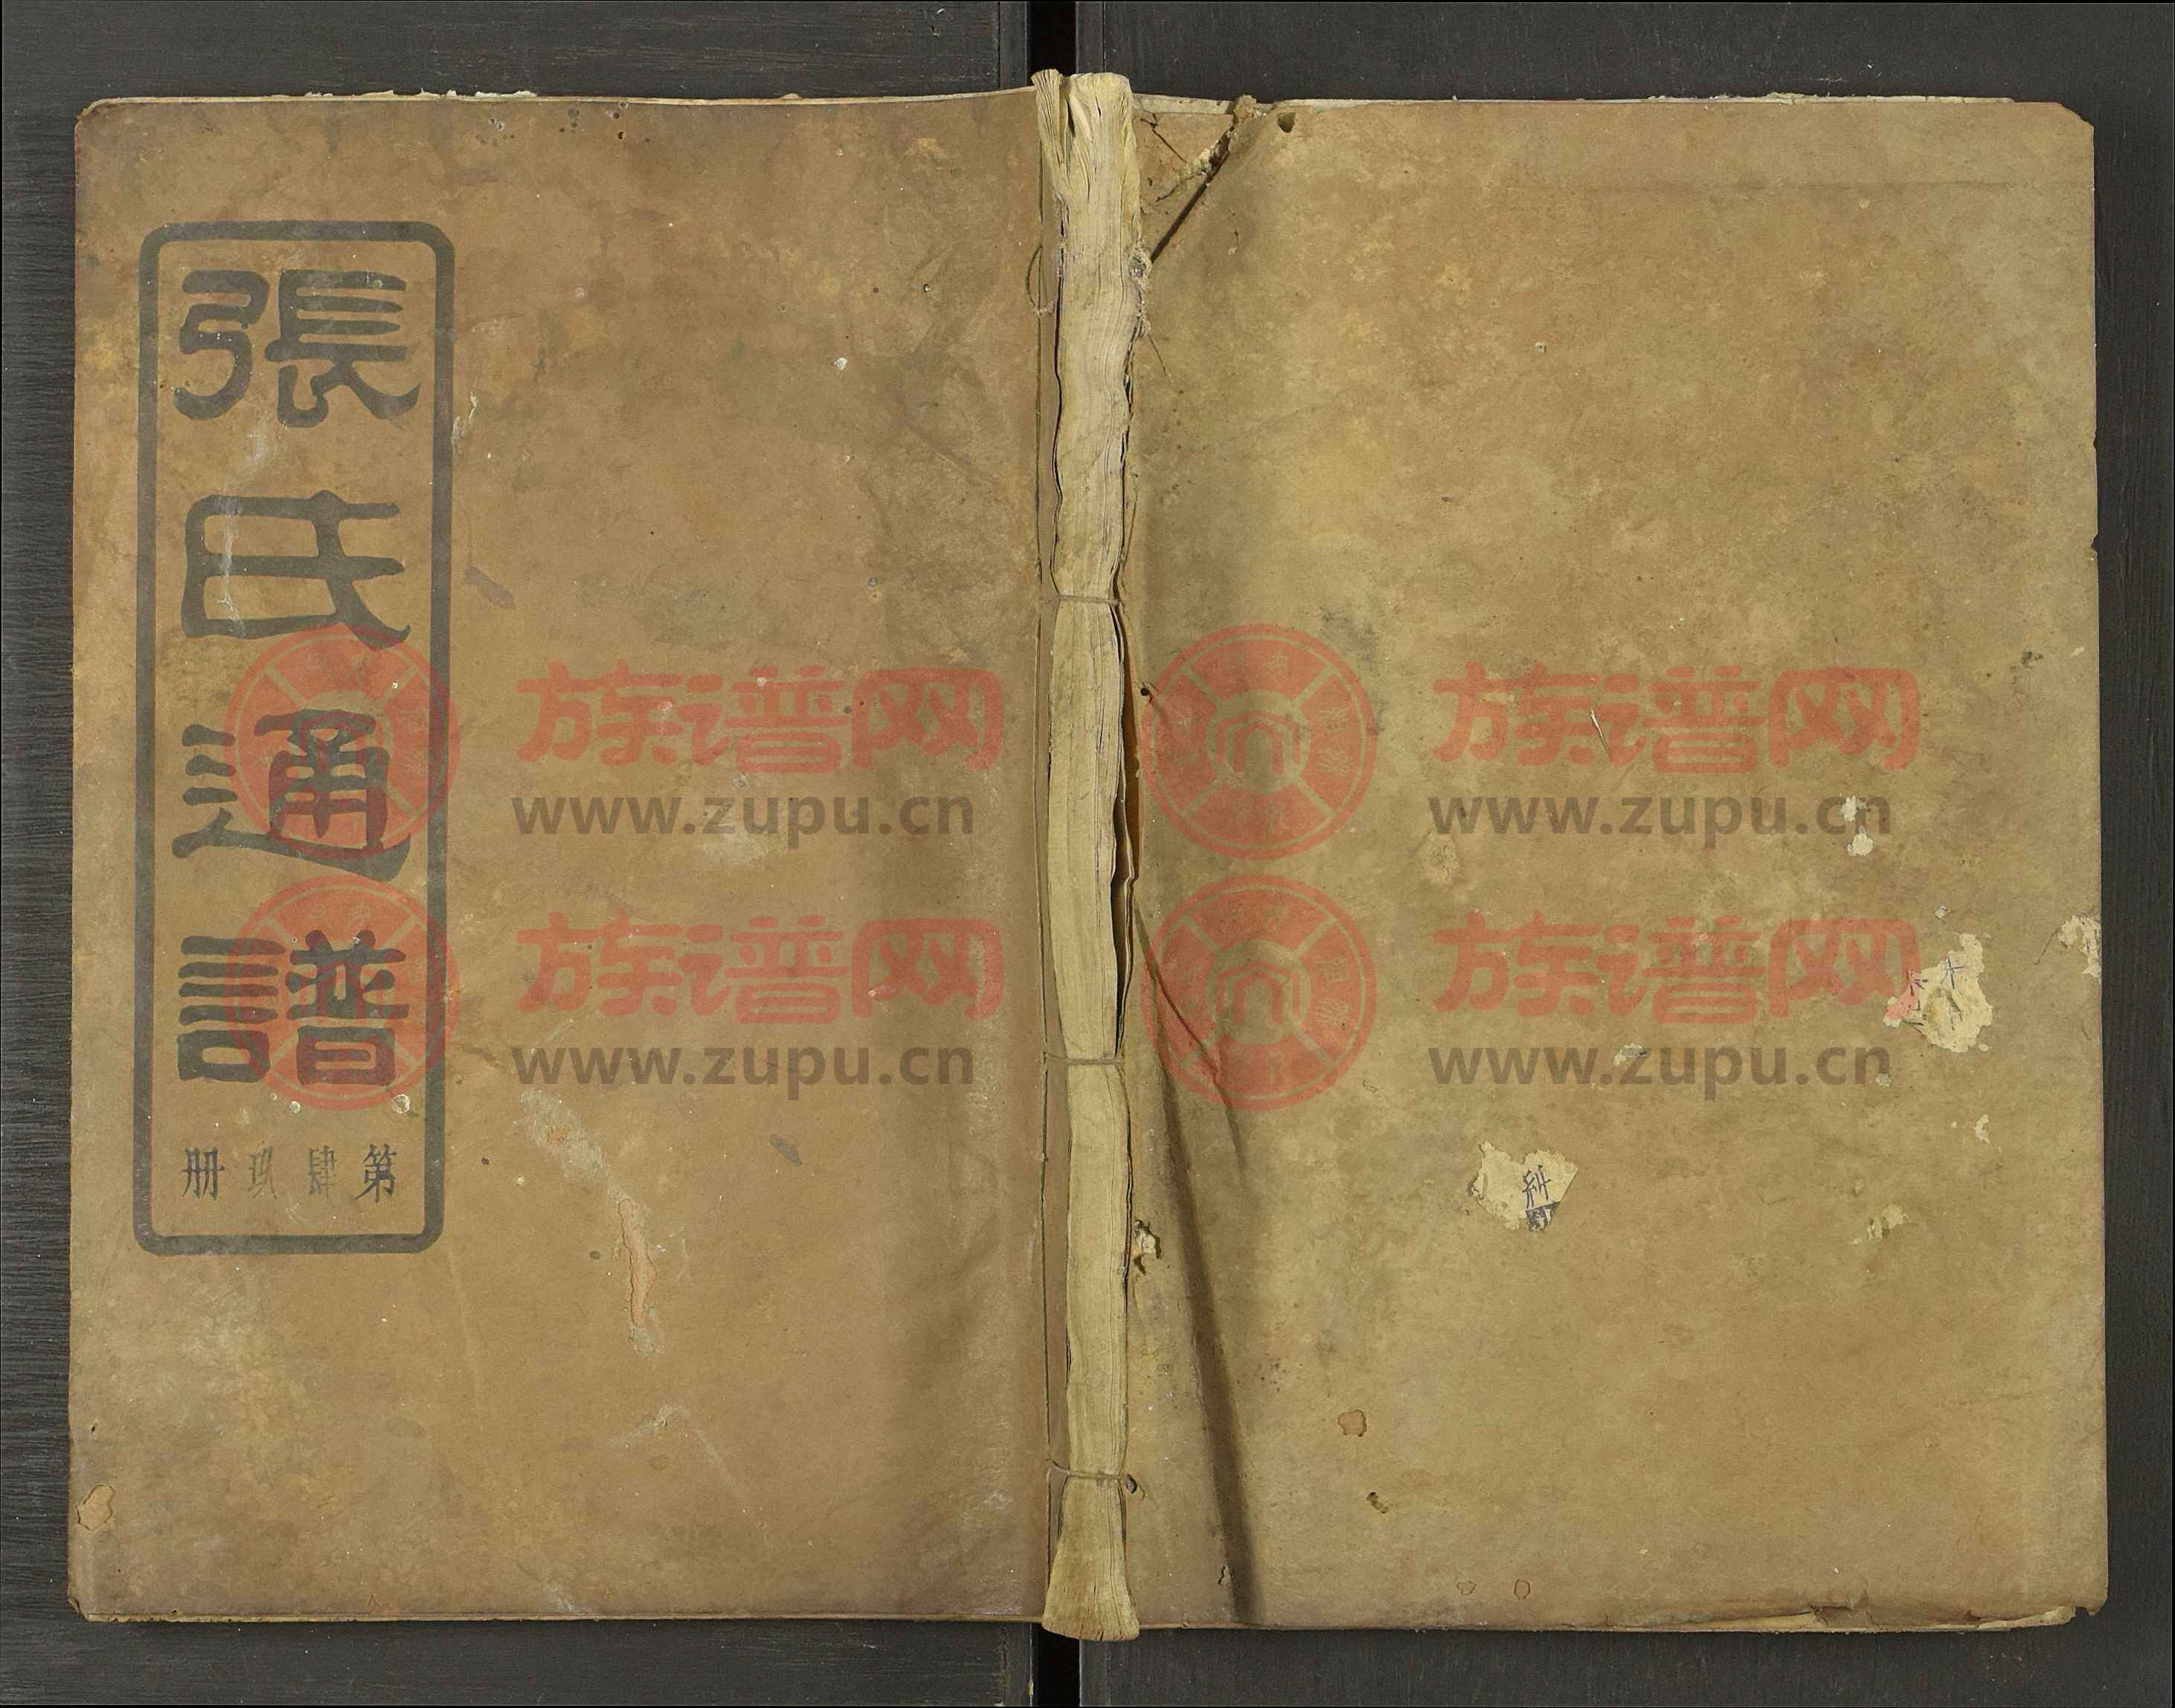 張氏通譜
第肆玖册
族谱网 族谱网
www.zupu.cn www.zupu.cn
族谱网 族谱网
www.zupu.cn www.zupu.cn